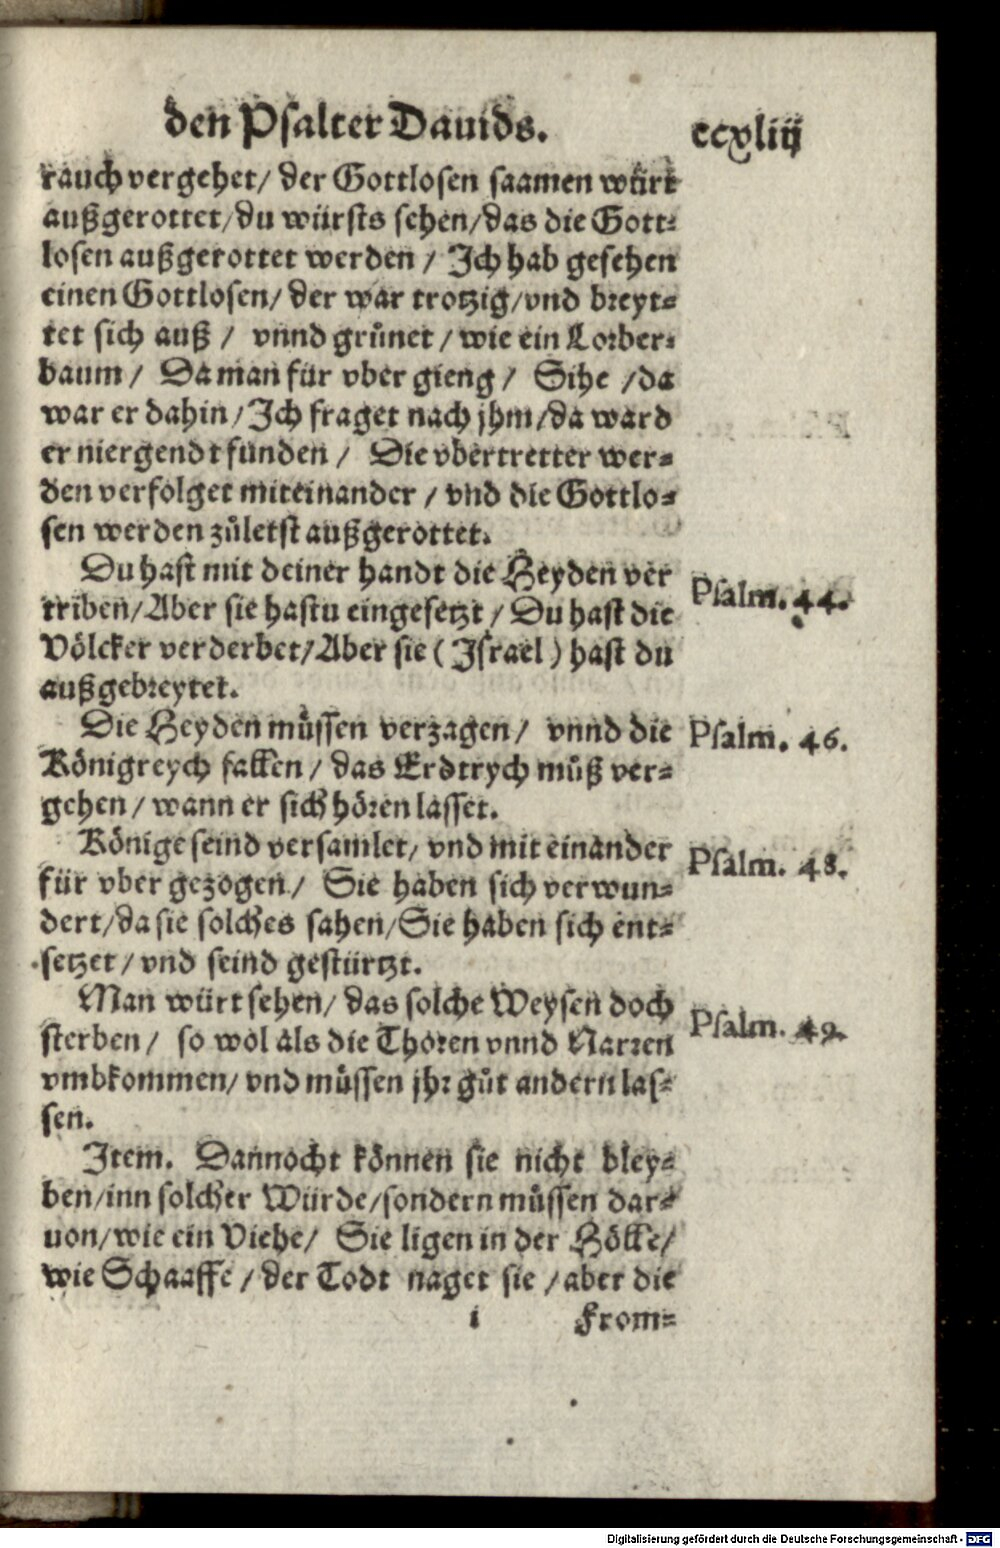 den Psalter Dauids.
ccxliij
rauch vergehet/ der Gottlosen saamen würt
außgerottet/du würsts sehen/das die Gott-
losen außgerottet werden / Ich hab gesehen
einen Gottlosen/ der war trotzig/vnd breyt-
tet sich auß / vnnd grünet / wie ein Lorber-
baum / Da man für vber gieng / Sihe /da
war er dahin/Ich fraget nach jhm/da ward
er niergendt funden / Die vbertretter wer-
den verfolget miteinander / vnd die Gottlo-
sen werden zůletst außgerottet.
Du hast mit deiner handt die Heyden ver
triben/Aber sie hastu eingesetzt / Du hast die
Völcker verderbet/Aber sie (Israel) hast du
außgebreytet.
Psalm. 44.
Die Heyden müssen verzagen/ vnnd die
Königreych fallen / das Erdtrych můß ver-
gehen / wann er sich hören lasset.
Psalm. 46.
Könige seind versamlet/ vnd mit einander
für vber gezogen/ Sie haben sich verwun-
dert/da sie solches sahen/Sie haben sich ent-
setzet / vnd seind gestürtzt.
Psalm. 48.
Man würt sehen/ das solche Weysen doch
sterben / so wol als die Thoren vnnd Narren
vmbkommen/ vnd müssen jhr gůt andern las-
sen.
Psalm. 49.
Item. Dannocht können sie nicht bley-
ben/inn solcher Würde/sondern müssen dar-
uon/wie ein Viehe/ Sie ligen in der Hölle/
wie Schaaffe / der Todt naget sie /aber die
i
From-
Digitalisierung gefördert durch die Deutsche Forschungsgemeinschaft - DFG